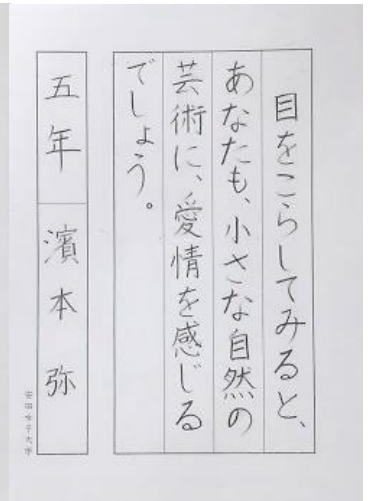 目をこらしてみると、
あなたも、小さな自然の
芸術に、愛情を感じる
でしょう。
五年 濱本 弥
安田女子大学